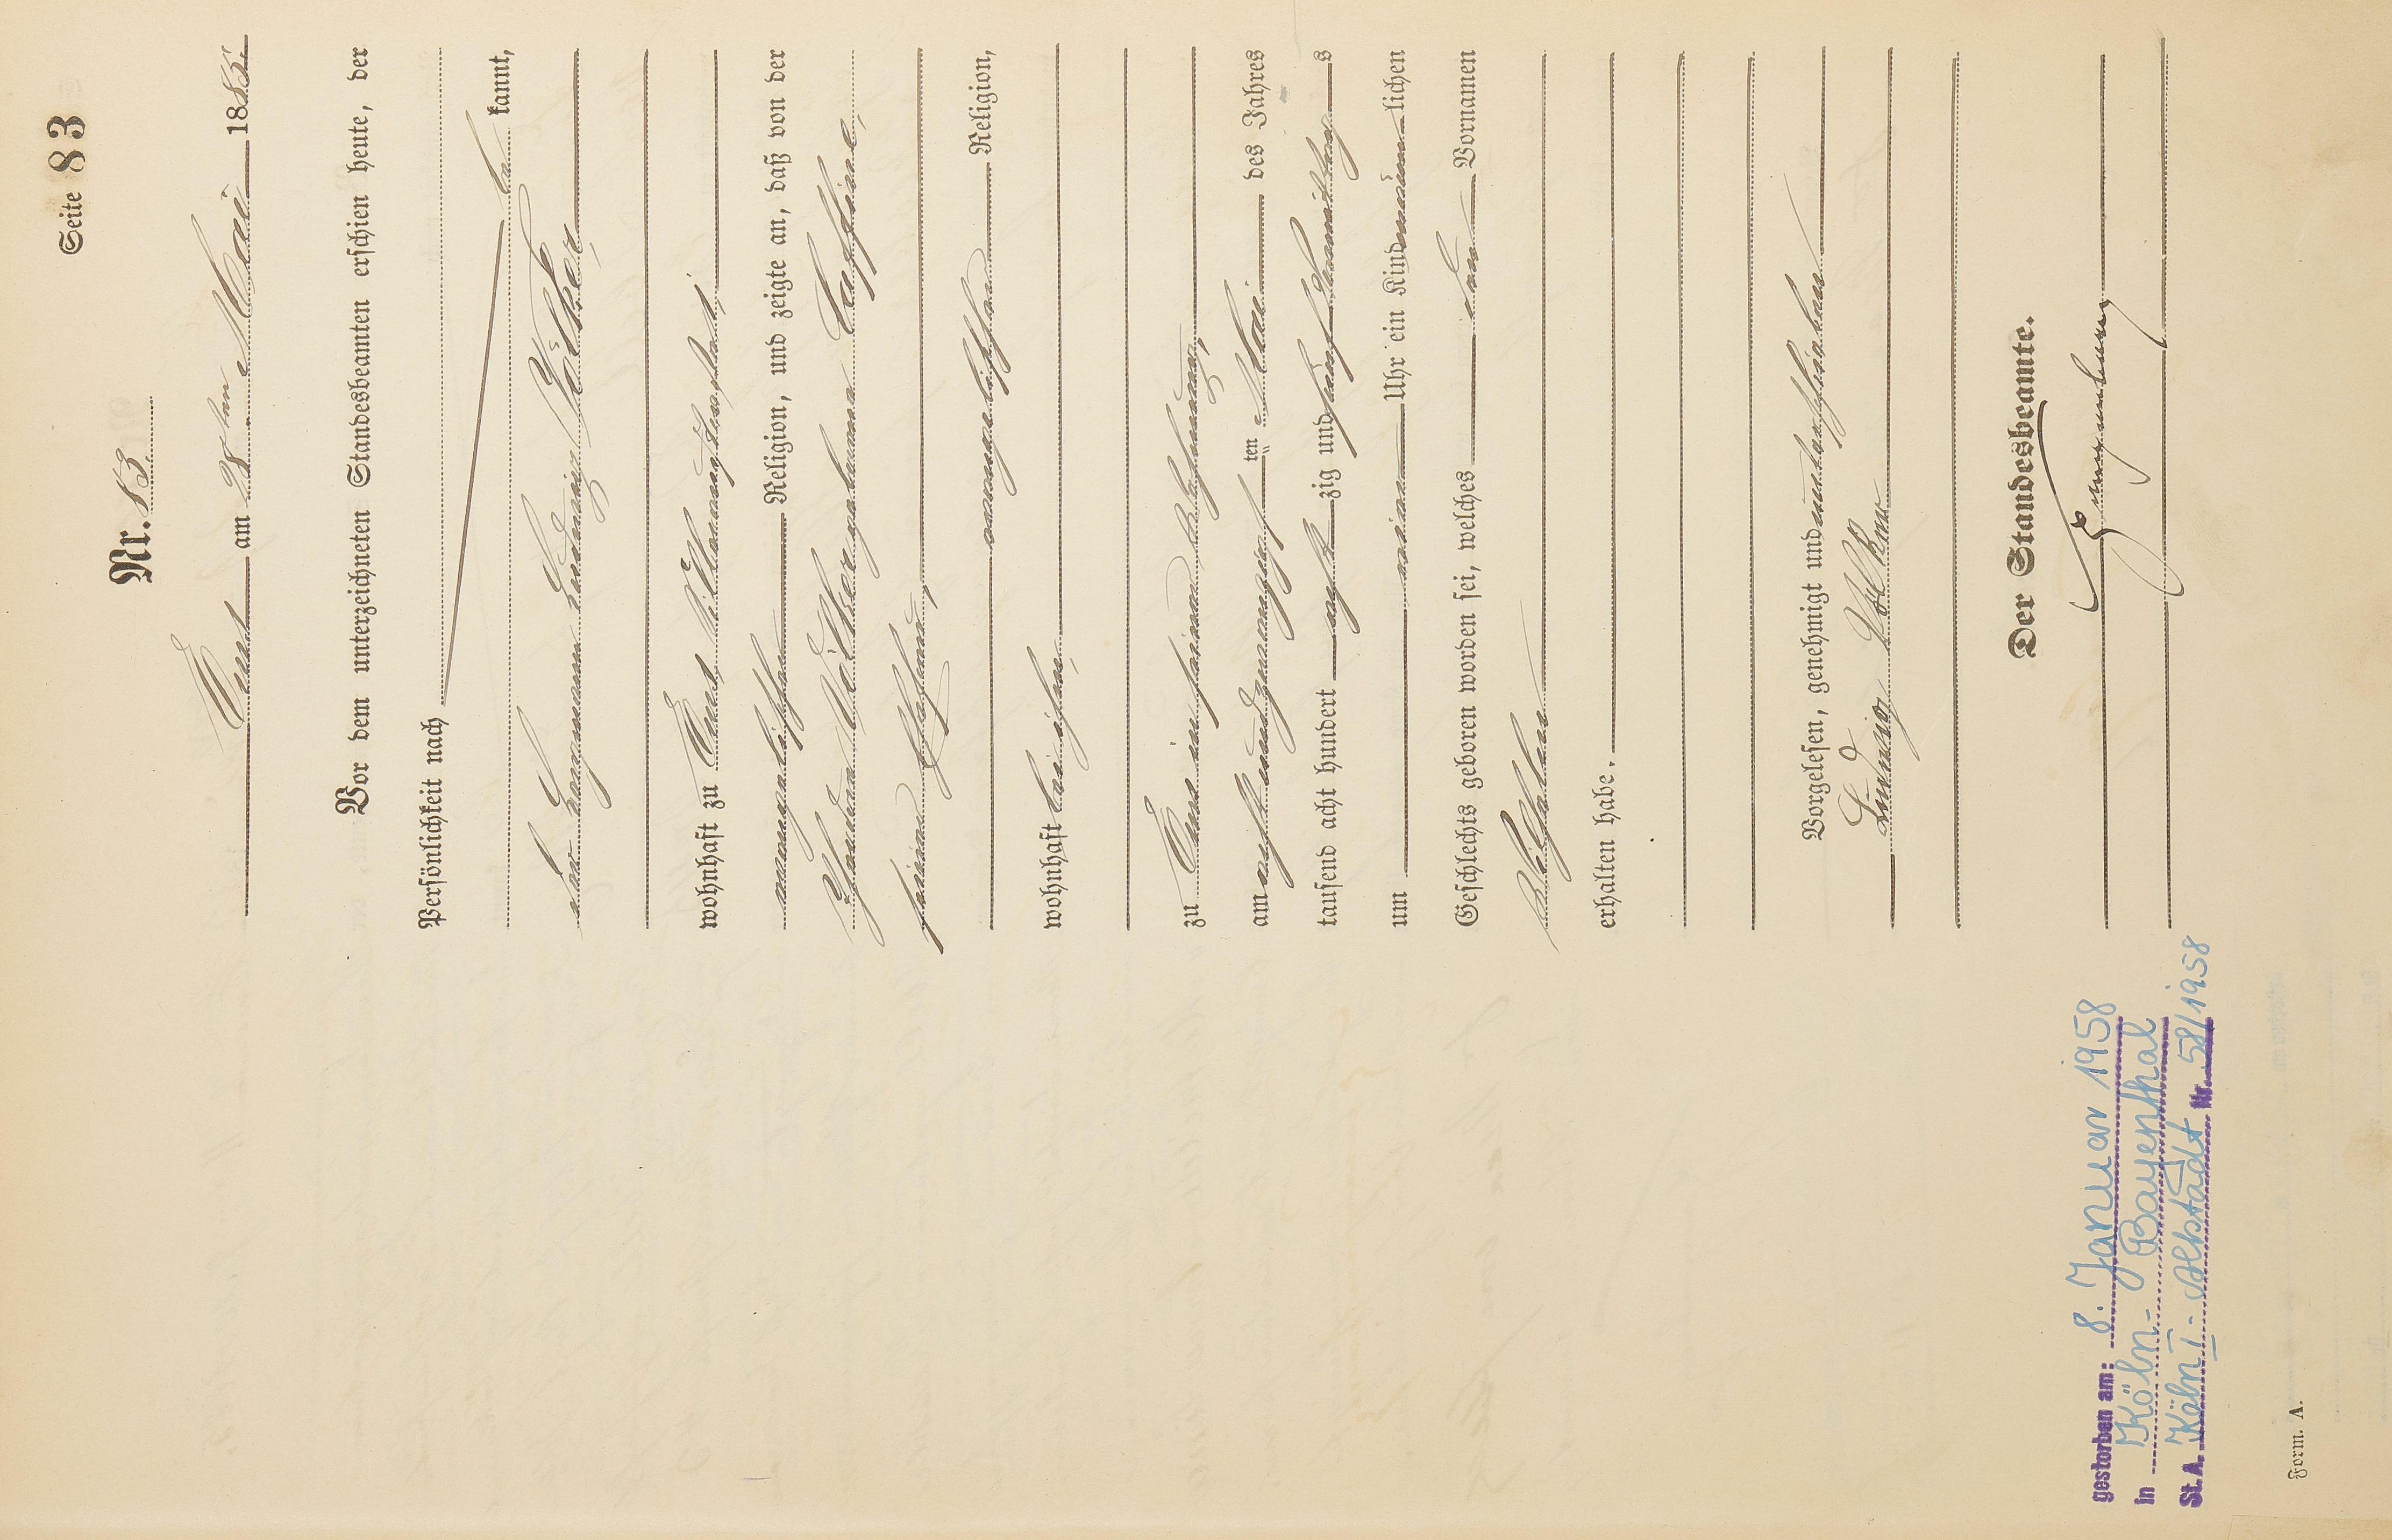 Seite 83
Nr. 83.
Ems am 28ten Mai 1885.
Vor dem unterzeichneten Standesbeamten erschien heute, der
Persönlichkeit nach
be kannt,
der Hauptmann Ludwig Völker,
wohnhaft zu Ems,
evangelischer Religion, und zeigte an, daß von der
geborenen
seiner Ehefrau,
evangelischer Religion,
wohnhaft bei ihm,
zu Ems in seiner Wohnung,
am acht und zwanzigsten ten Mai des Jahres
tausend acht hundert acht zig und fünf Vormittags
um neun Uhr ein Kind männlichen
Geschlechts geboren worden sei, welches den Vornamen
Wilhelm
erhalten habe.
Vorgelesen, genehmigt und unterschrieben
Ludwig Völker
Der Standesbeamte.
gestorben am: 8. Januar 1958
in Köln-Bayenthal
St.A. Köln I-Altstadt Nr. 58/1958
Form. A.